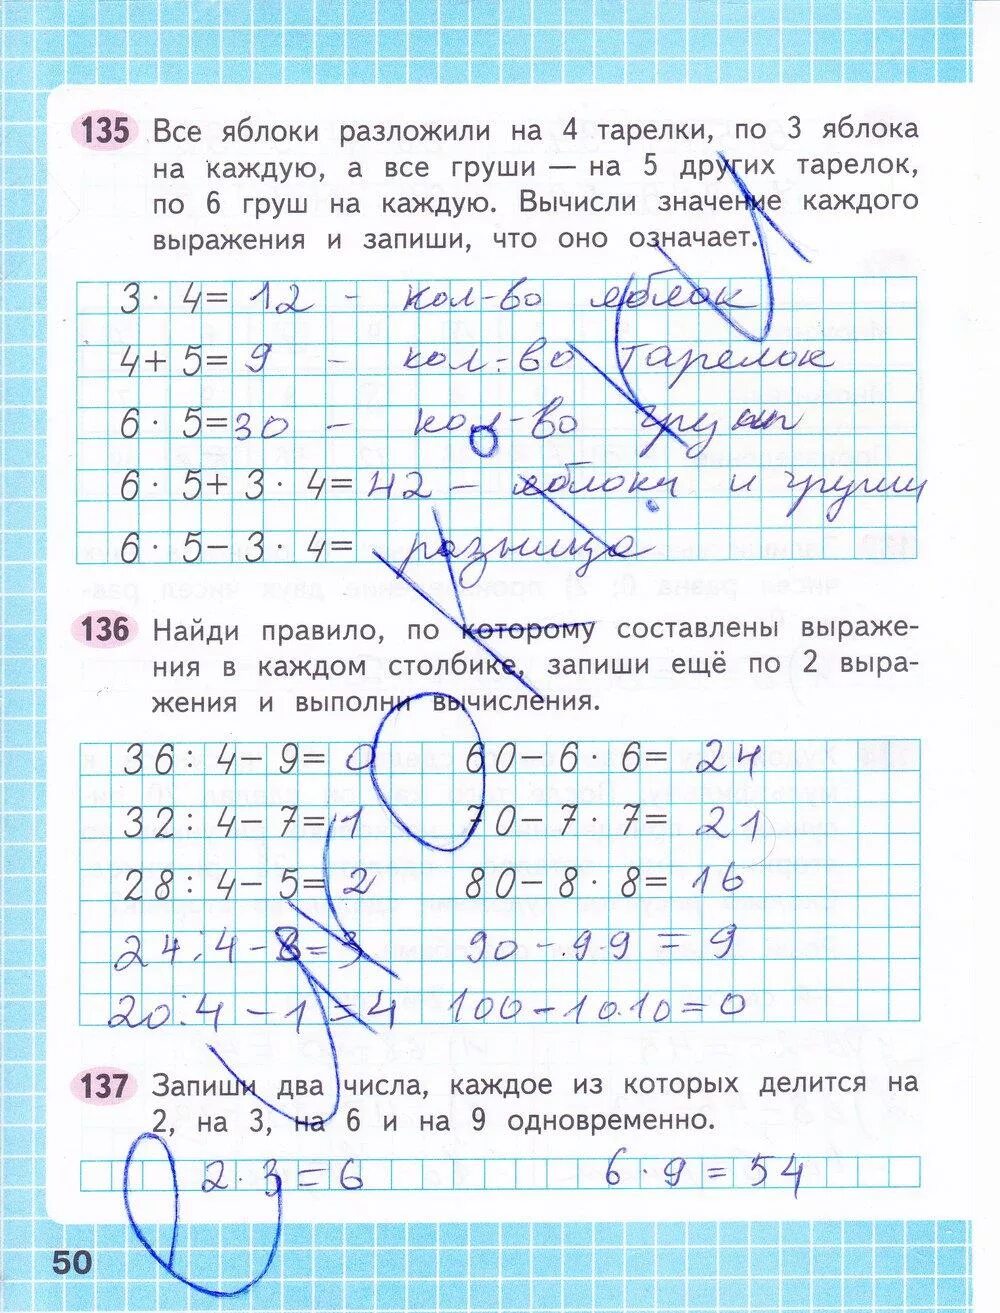 135 Все яблоки разложили на 4 тарелки, по 3 яблока
на каждую, а все груши — на 5 других тарелок,
по 6 груш на каждую. Вычисли значение каждого
выражения и запиши, что оно означает.
3 · 4= 12 - кол-во яблок
4+ 5= 9 - кол-во тарелок
6 · 5=30 - кол-во груш
6 · 5+ 3 · 4= 42 - яблоки и груши
6 · 5- 3 · 4= разница
136 Найди правило, по которому составлены выраже-
ния в каждом столбике, запиши ещё по 2 выра-
жения и выполни вычисления.
36: 4- 9= 0 60-6 · 6= 24
32: 4-7= 1 70-7 · 7= 21
28: 4- 5= 2 80-8 · 8= 16
24:4-3=3 90-9·9=9
20:4-1=4 100-10·10=0
137 Запиши два числа, каждое из которых делится на
2, на 3, на 6 и на 9 одновременно.
2·3=6 6·9=54
50